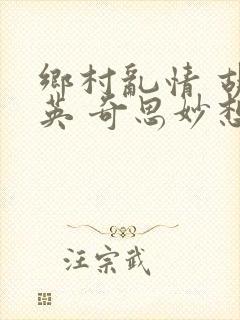 鄉村亂情 胡
英 奇思妙想
汪宗武